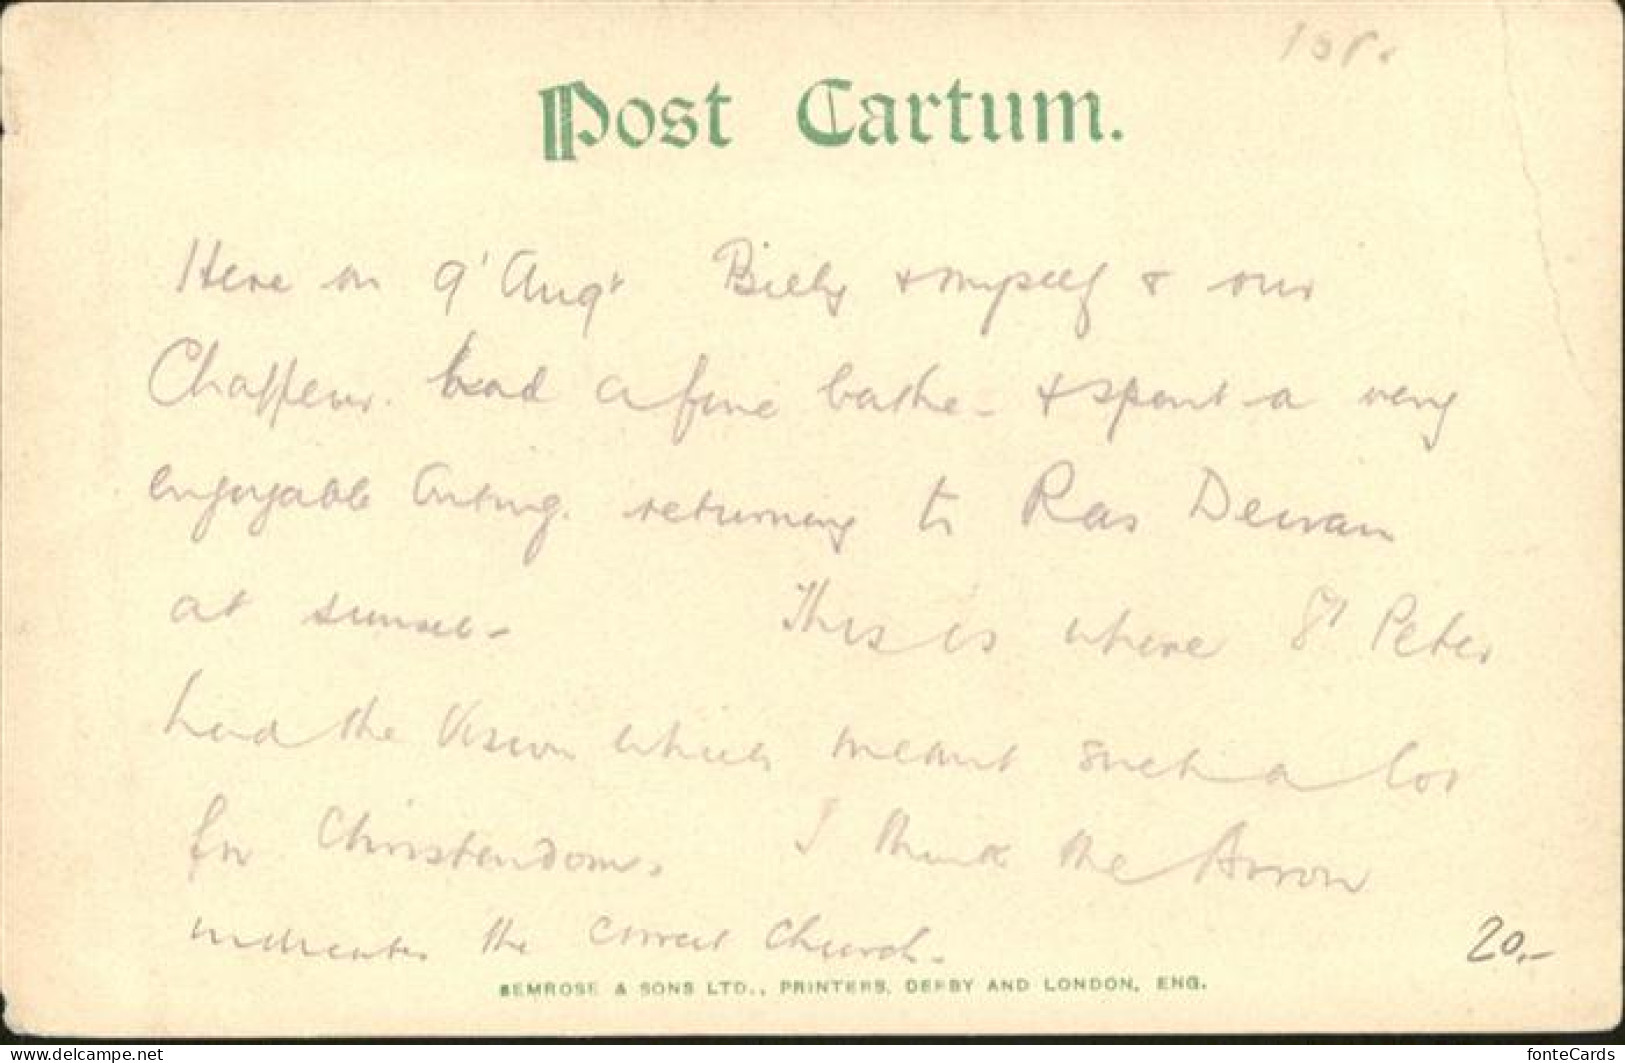 Post Cartum.
Here on 9' Augt Billy & myself & our
Chaffeur. had a fine bathe - & spent a very
enjoyable outing. returning to Ras Dewan
at sunset - This is where St Peter
had the Vision which meant such a lot
for Christendom. I think the Arrow
indicates the correct Church.
20.-
BEMROSE & SONS LTD., PRINTERS, DERBY AND LONDON, ENG.
www.delcampe.net
fonteCards